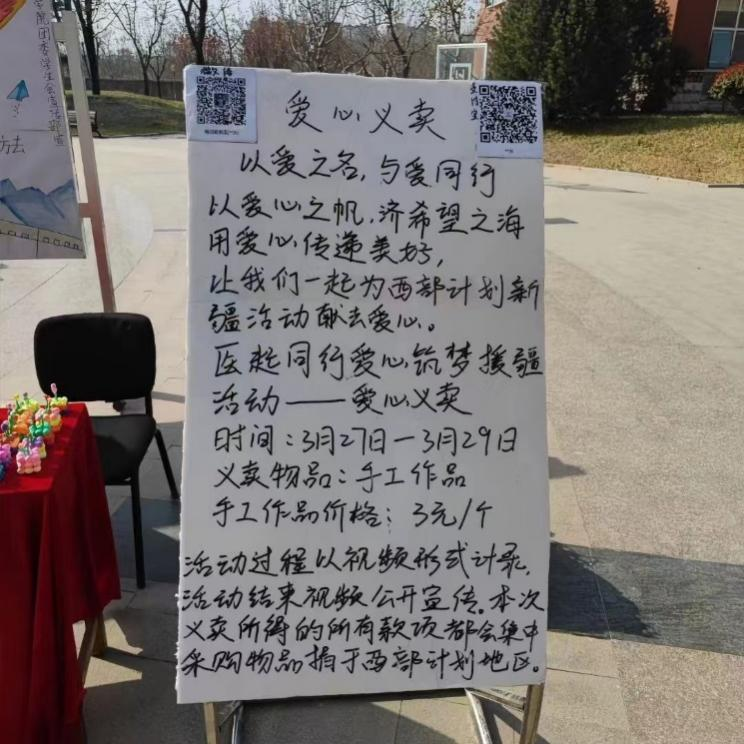 爱心义卖
以爱之名,与爱同行
以爱心之帆,济希望之海
用爱心传递美好,
让我们一起为西部计划新
疆活动献去爱心。
医起同行爱心筑梦援疆
活动——爱心义卖
时间:3月27日—3月29日
义卖物品:手工作品
手工作品价格:3元/个
活动过程以视频形式计录,
活动结束视频公开宣传。本次
义卖所得的所有款项都会集中
采购物品捐于西部计划地区。
微信
支付宝
学院团委学生会宣传部宣